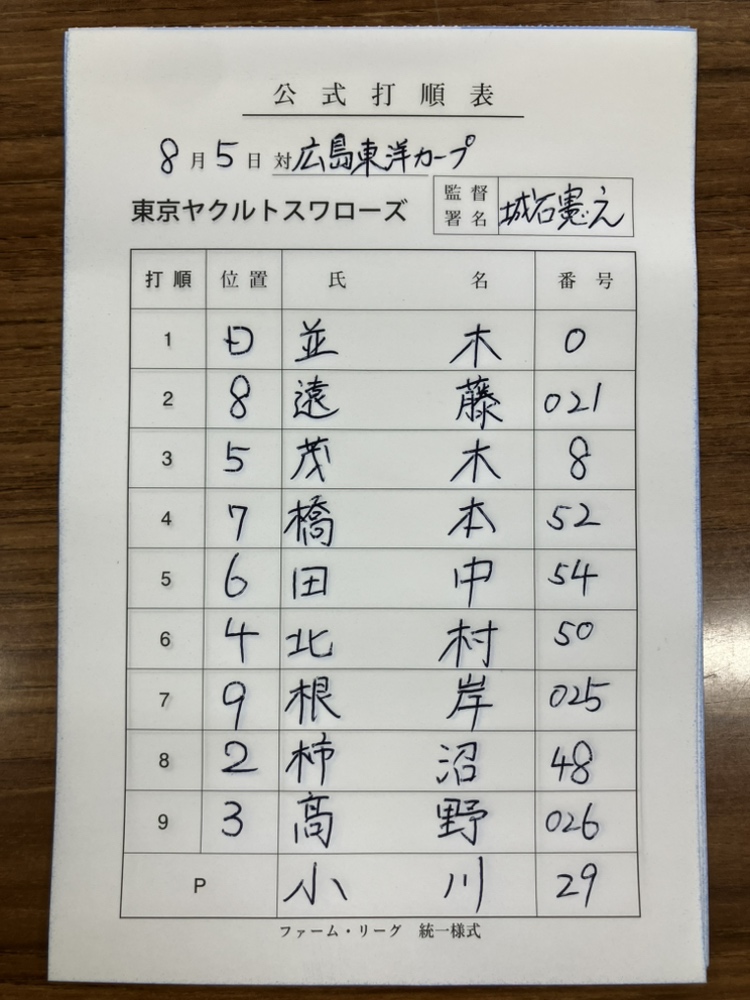 公式打順表
8月5日 対 広島東洋カープ
東京ヤクルトスワローズ 監督署名 城石憲之
打順 位置 氏名 番号
1 D 並木 0
2 8 遠藤 021
3 5 茂木 8
4 7 橋本 52
5 6 田中 54
6 4 北村 50
7 9 根岸 025
8 2 柿沼 48
9 3 髙野 026
P 小川 29
ファーム・リーグ 統一様式